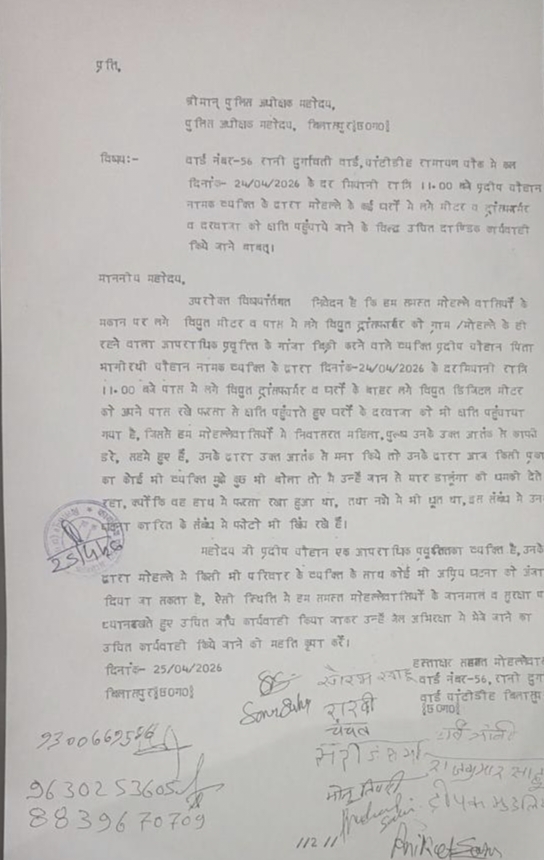 प्रति,
श्रीमान् पुलिस अधीक्षक महोदय,
पुलिस अधीक्षक महोदय, बिलासपुर[छ0ग0]
विषयः- वार्ड नंबर-56 रानी दुर्गावती वार्ड, चांटीडीह रामायण चौक मे कल
दिनांक- 24/04/2026 के दर मियानी रात्रि 11.00 बजे प्रदीप चौहान
नामक व्यक्ति के द्वारा मोहल्ले के कई घरों मे लगे मीटर व ट्रांसफार्मर
व दरवाजा को क्षति पहुंचाये जाने के विरूद्ध उचित दाण्डिक कार्यवाही
किये जाने बाबत्।
माननीय महोदय,
उपरोक्त विषयांतर्गत निवेदन है कि हम समस्त मोहल्ले वासियों के
मकान पर लगे विद्युत मीटर व पास मे लगे विद्युत ट्रांसफार्मर को ग्राम /मोहल्ले के ही
रहने वाला आपराधिक प्रवृत्ति के गांजा बिक्री करने वाले व्यक्ति प्रदीप चौहान पिता
भागीरथी चौहान नामक व्यक्ति के द्वारा दिनांक-24/04/2026 के दरमियानी रात्रि
11.00 बजे पास मे लगे विद्युत ट्रांसफार्मर व घरों के बाहर लगे विद्युत डिजिटल मीटर
को अपने पास रखे फरसा से क्षति पहुंचाते हुए घरों के दरवाजा को भी क्षति पहुंचाया
गया है, जिससे हम मोहल्लेवासियों मे निवासरत महिला, पुरूष उनके उक्त आतंक से काफी
डरे, सहमे हुए हैं, उनके द्वारा उक्त आतंक से मना किये तो उनके द्वारा आज किसी
का कोई भी व्यक्ति मुझे कुछ भी बोला तो मै उन्हें जान से मार डालूंगा की धमकी देते
रहा, क्योंकि वह हाथ मे फरसा रखा हुआ था, तथा नशे मे भी धूत था, इस संबंध मे
घटना कारित के संबंध मे फोटो भी खिंच रखे हैं।
महोदय जी प्रदीप चौहान एक आपराधिक प्रवृत्तिका व्यक्ति है, उनके
द्वारा मोहल्ले मे किसी भी परिवार के व्यक्ति के साथ कोई भी अप्रिय घटना को अंजा
दिया जा सकता है, ऐसी स्थिति मे हम समस्त मोहल्लेवासियों के जानमाल व सुरक्षा
ध्यानरखते हुए उचित जांच कार्यवाही किया जाकर उन्हें जेल अभिरक्षा मे भेजे जाने का
उचित कार्यवाही किये जाने की महति कृपा करें।
25/4/26
दिनांक- 25/04/2026
बिलासपुर[छ0ग0]
हस्ताक्षर समस्त मोहल्लेवा
वार्ड नंबर-56, रानी दु
वार्ड चांटीडीह बिलासपु
[छ0ग0]
सौरभ साहू
शारदी
चंचल
राजकुमार साहू
9630253605
8839670709